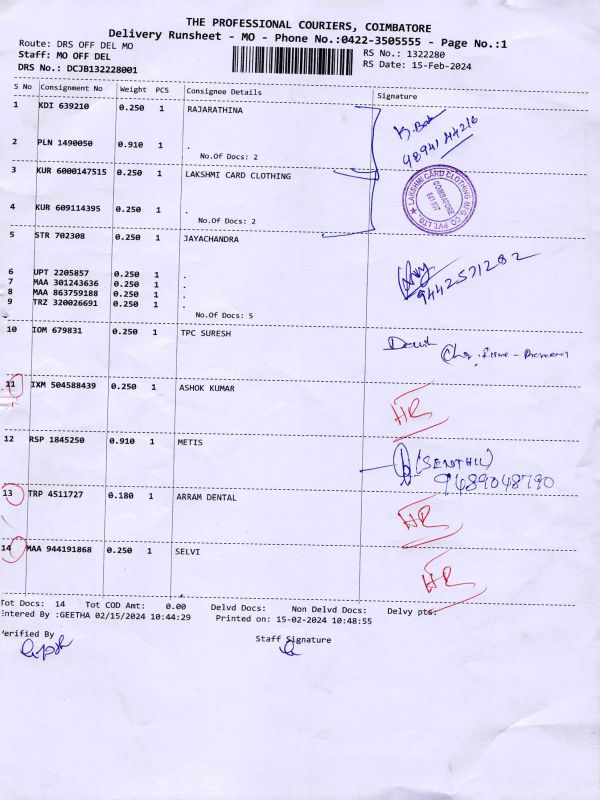 THE PROFESSIONAL COURIERS, COIMBATORE
Delivery Runsheet - MO - Phone No.:0422-3505555 - Page No.:1
Route: DRS OFF DEL MO
RS No.: 1322280
Staff: MO OFF DEL
RS Date: 15-Feb-2024
DRS No.: DCJB132228001
S No Consignment No Weight PCS Consignee Details Signature
1 KDI 639210 0.250 1 RAJARATHINA
98941 44216
2 PLN 1490050 0.910 1 .
No.Of Docs: 2
3 KUR 6000147515 0.250 1 LAKSHMI CARD CLOTHING
LAKSHMI CARD CLOTHING MFG CO PVT. LTD.
COIMBATORE
641 037
4 KUR 609114395 0.250 1 .
No.Of Docs: 2
5 STR 702308 0.250 1 JAYACHANDRA
9442571282
6 UPT 2205857 0.250 1 .
7 MAA 301243636 0.250 1 .
8 MAA 863759188 0.250 1 .
9 TRZ 320026691 0.250 1 .
No.Of Docs: 5
10 IOM 679831 0.250 1 TPC SURESH
11 IXM 504588439 0.250 1 ASHOK KUMAR
HR
12 RSP 1845250 0.910 1 METIS
(SENTHIL)
9489048790
13 TRP 4511727 0.180 1 ARRAM DENTAL
HR
14 MAA 944191868 0.250 1 SELVI
HR
Tot Docs: 14 Tot COD Amt: 0.00 Delvd Docs: Non Delvd Docs: Delvy pts:
Entered By :GEETHA 02/15/2024 10:44:29 Printed on: 15-02-2024 10:48:55
Verified By Staff Signature